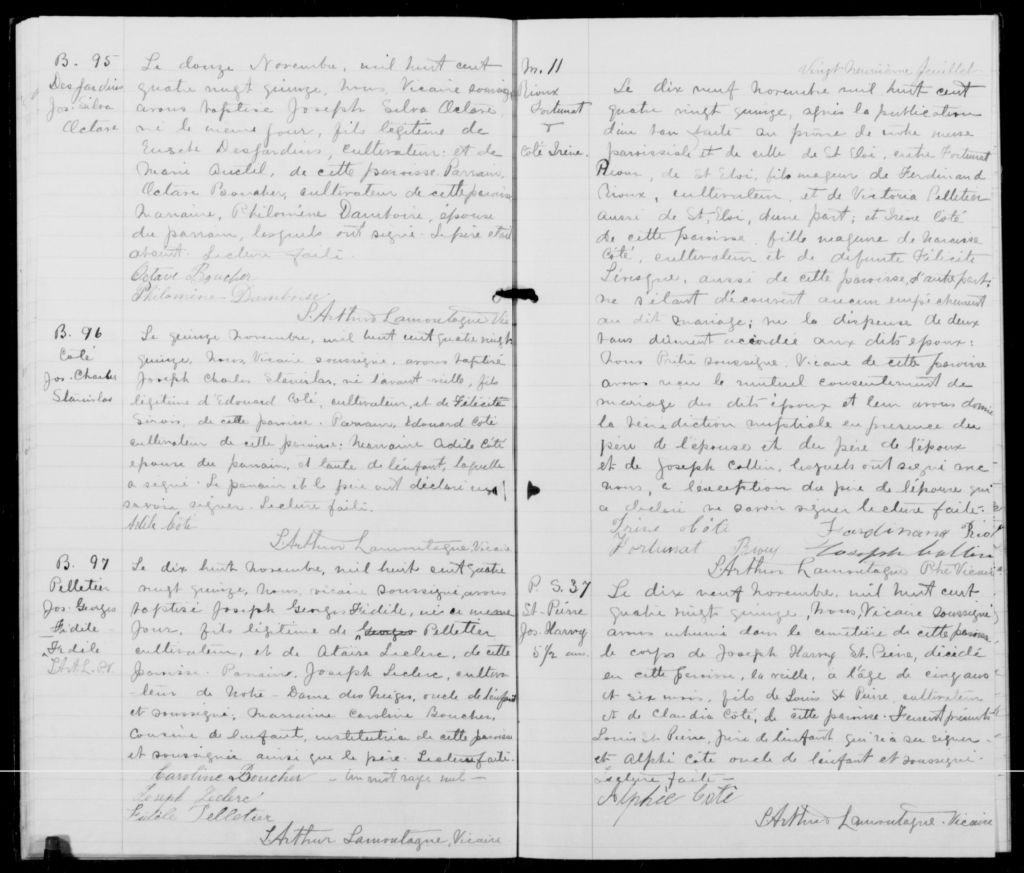 B. 95
Desjardins
Jos. Silva
Octave
Le douze Novembre, mil huit cent
quatre vingt quinze, Nous, Vicaire soussigné
avons baptisé Joseph Silva Octave
né le même jour, fils légitime de
Eusèbe Desjardins, cultivateur; et de
Marie Ouellet, de cette paroisse. Parrain,
Octave Boucher, cultivateur de cette paroisse
Marraine, Philomène Damboise, épouse
du parrain, lesquels ont signé. Le père était
absent. Lecture faite.
Octave Boucher
Philomène Damboise
J. Arthur Lamontagne, Vic
B. 96
Coté
Jos. Charles
Stanislas
Le quinze Novembre, mil huit cent quatre vingt
quinze, Nous, Vicaire soussigné, avons baptisé
Joseph Charles Stanislas, né l'avant-veille, fils
légitime d'Edouard Coté, cultivateur, et de Félicité
Sirois, de cette paroisse. Parrain, Edouard Coté
cultivateur de cette paroisse; Marraine Adèle Côté
épouse du parrain, et tante de l'enfant, laquelle
a signé. Le parrain et le père ont déclaré ne
savoir signer. Lecture faite.
Adèle Côté
J. Arthur Lamontagne, Vicaire
B. 97
Pelletier
Jos. Georges
Fidèle
Fidèle
J.A.L. V.
Le dix huit Novembre, mil huit cent quatre
vingt quinze, Nous, vicaire soussigné, avons
baptisé Joseph Georges Fidèle, né ce même
jour, fils légitime de Georges Pelletier
cultivateur, et de Ataire Leclerc, de cette
paroisse. Parrain, Joseph Leclerc, cultiva-
-teur de Notre-Dame des Neiges, oncle de l'enfant
et soussigné; Marraine Caroline Boucher,
cousine de l'enfant, institutrice de cette paroisse
et soussignée ainsi que le père. Lecture faite.
Caroline Boucher — Un mot rayé nul —
Joseph Leclerc
Fidèle Pelletier
J. Arthur Lamontagne, Vicaire
Vingt neuvième feuillet
M. 11
Rioux
Fortunat
&
Coté Irène.
Le dix neuf Novembre mil huit cent
quatre vingt quinze, après la publication
d'un ban faite au prône de notre messe
paroissiale et de celle de St Eloi, entre Fortunat
Rioux, de St Eloi, fils majeur de Ferdinand
Rioux, cultivateur, et de Victoria Pelletier
aussi de St. Eloi, d'une part; et Irène Coté
de cette paroisse, fille majeure de Narcisse
Côté, cultivateur et de défunte Félicité
Lévesque, aussi de cette paroisse, d'autre part;
ne s'étant découvert aucun empêchement
au dit mariage; vu la dispense de deux
bans dûment accordée aux dits époux:
Nous Prêtre soussigné, Vicaire de cette paroisse
avons reçu le mutuel consentement de
mariage des dits époux et leur avons donné
la bénédiction nuptiale en présence du
père de l'épouse et du père de l'époux
et de Joseph Collin, lesquels ont signé avec
nous, à l'exception du père de l'épouse qui
a déclaré ne savoir signer lecture faite.
Irène Côté Ferdinand Rioux
Fortunat Rioux Joseph Collin
J. Arthur Lamontagne Ptre Vicaire
P. S. 37
St-Pierre
Jos. Harvey
5 1/2 ans.
Le dix neuf Novembre, mil huit cent
quatre vingt quinze, Nous, Vicaire soussigné
avons inhumé dans le cimetière de cette paroisse
le corps de Joseph Harvey St. Pierre, décédé
en cette paroisse, la veille, à l'âge de cinq ans
et six mois, fils de Louis St Pierre cultivateur
et de Claudia Côté, de cette paroisse. Furent présents
Louis St Pierre, père de l'enfant qui n'a su signer
et Alphé Côté oncle de l'enfant et soussigné.
Lecture faite —
Alphée Côté
J. Arthur Lamontagne. Vicaire